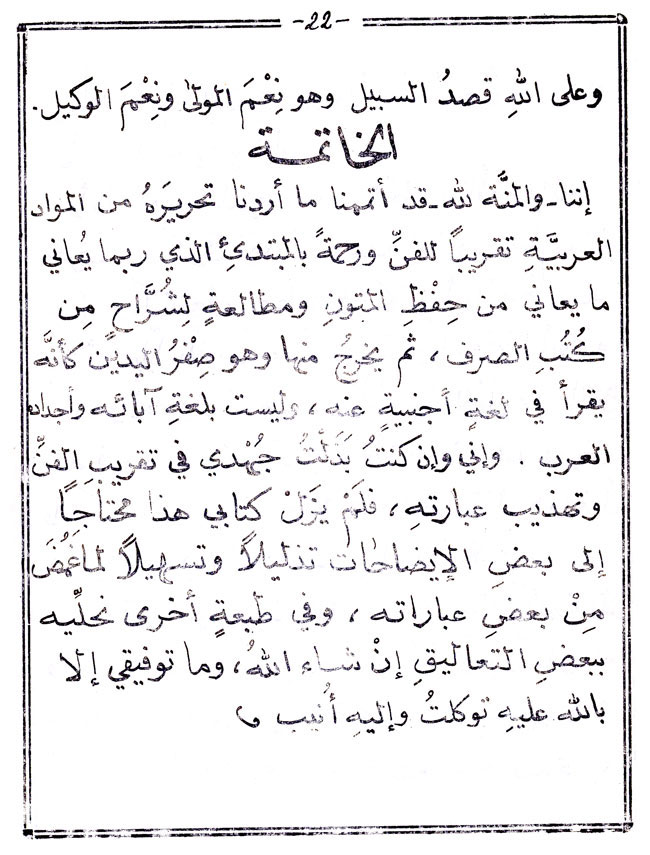 -22-
وعلى اللهِ قصدُ السبيل وهو نِعْمَ المولىٰ ونِعْمَ الوكيل.
الخاتمـة
إننا-والمنَّة لله-قد أتممنا ما أردنا تحريرَهُ من المواد
العربيَّةِ تقريباً للفنِّ ورحمةً بالمبتدئِ الذي ربما يُعاني
ما يعاني من حِفْظِ المتونِ ومطالعةٍ لِشُرَّاحٍ مِن
كُتُبِ الصرف، ثم يخرجُ منها وهو صِفْرُ اليدين كأنَّه
يقرأ في لغةٍ أجنبيةٍ عنه، وليست بلغةِ آبائـه وأجداده
العرب . وإني وإن كنتُ بَذَلْتُ جُهْدي في تقريبِ الفنِّ
وتهذيب عبارتهِ، فلَمْ يَزَلْ كتابي هذا محتاجاً
إلى بعضِ الإيضاحات تذليلاً وتسهيلاً لماغَمُضَ
مِنْ بعضِ عباراته ، وفي طبعةٍ أخرى نحلِّيه
ببعضِ التعاليقِ إنْ شاء اللهُ، وما توفيقي إلا
بالله عليهِ توكلتُ وإليهِ أُنيب